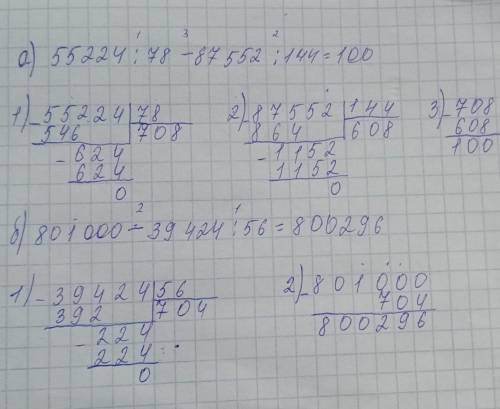 1 3 2
а) 55224 : 78 - 87552 : 144 = 100
1) - 55224 | 78
546 | 708
- 624
624
0
2) - 87552 | 144
864 | 608
- 1152
1152
0
3) - 708
608
100
2 1
б) 801000 - 39424 : 56 = 800296
1) - 39424 | 56
392 | 704
- 224
224
0
2) - 801000
704
800296